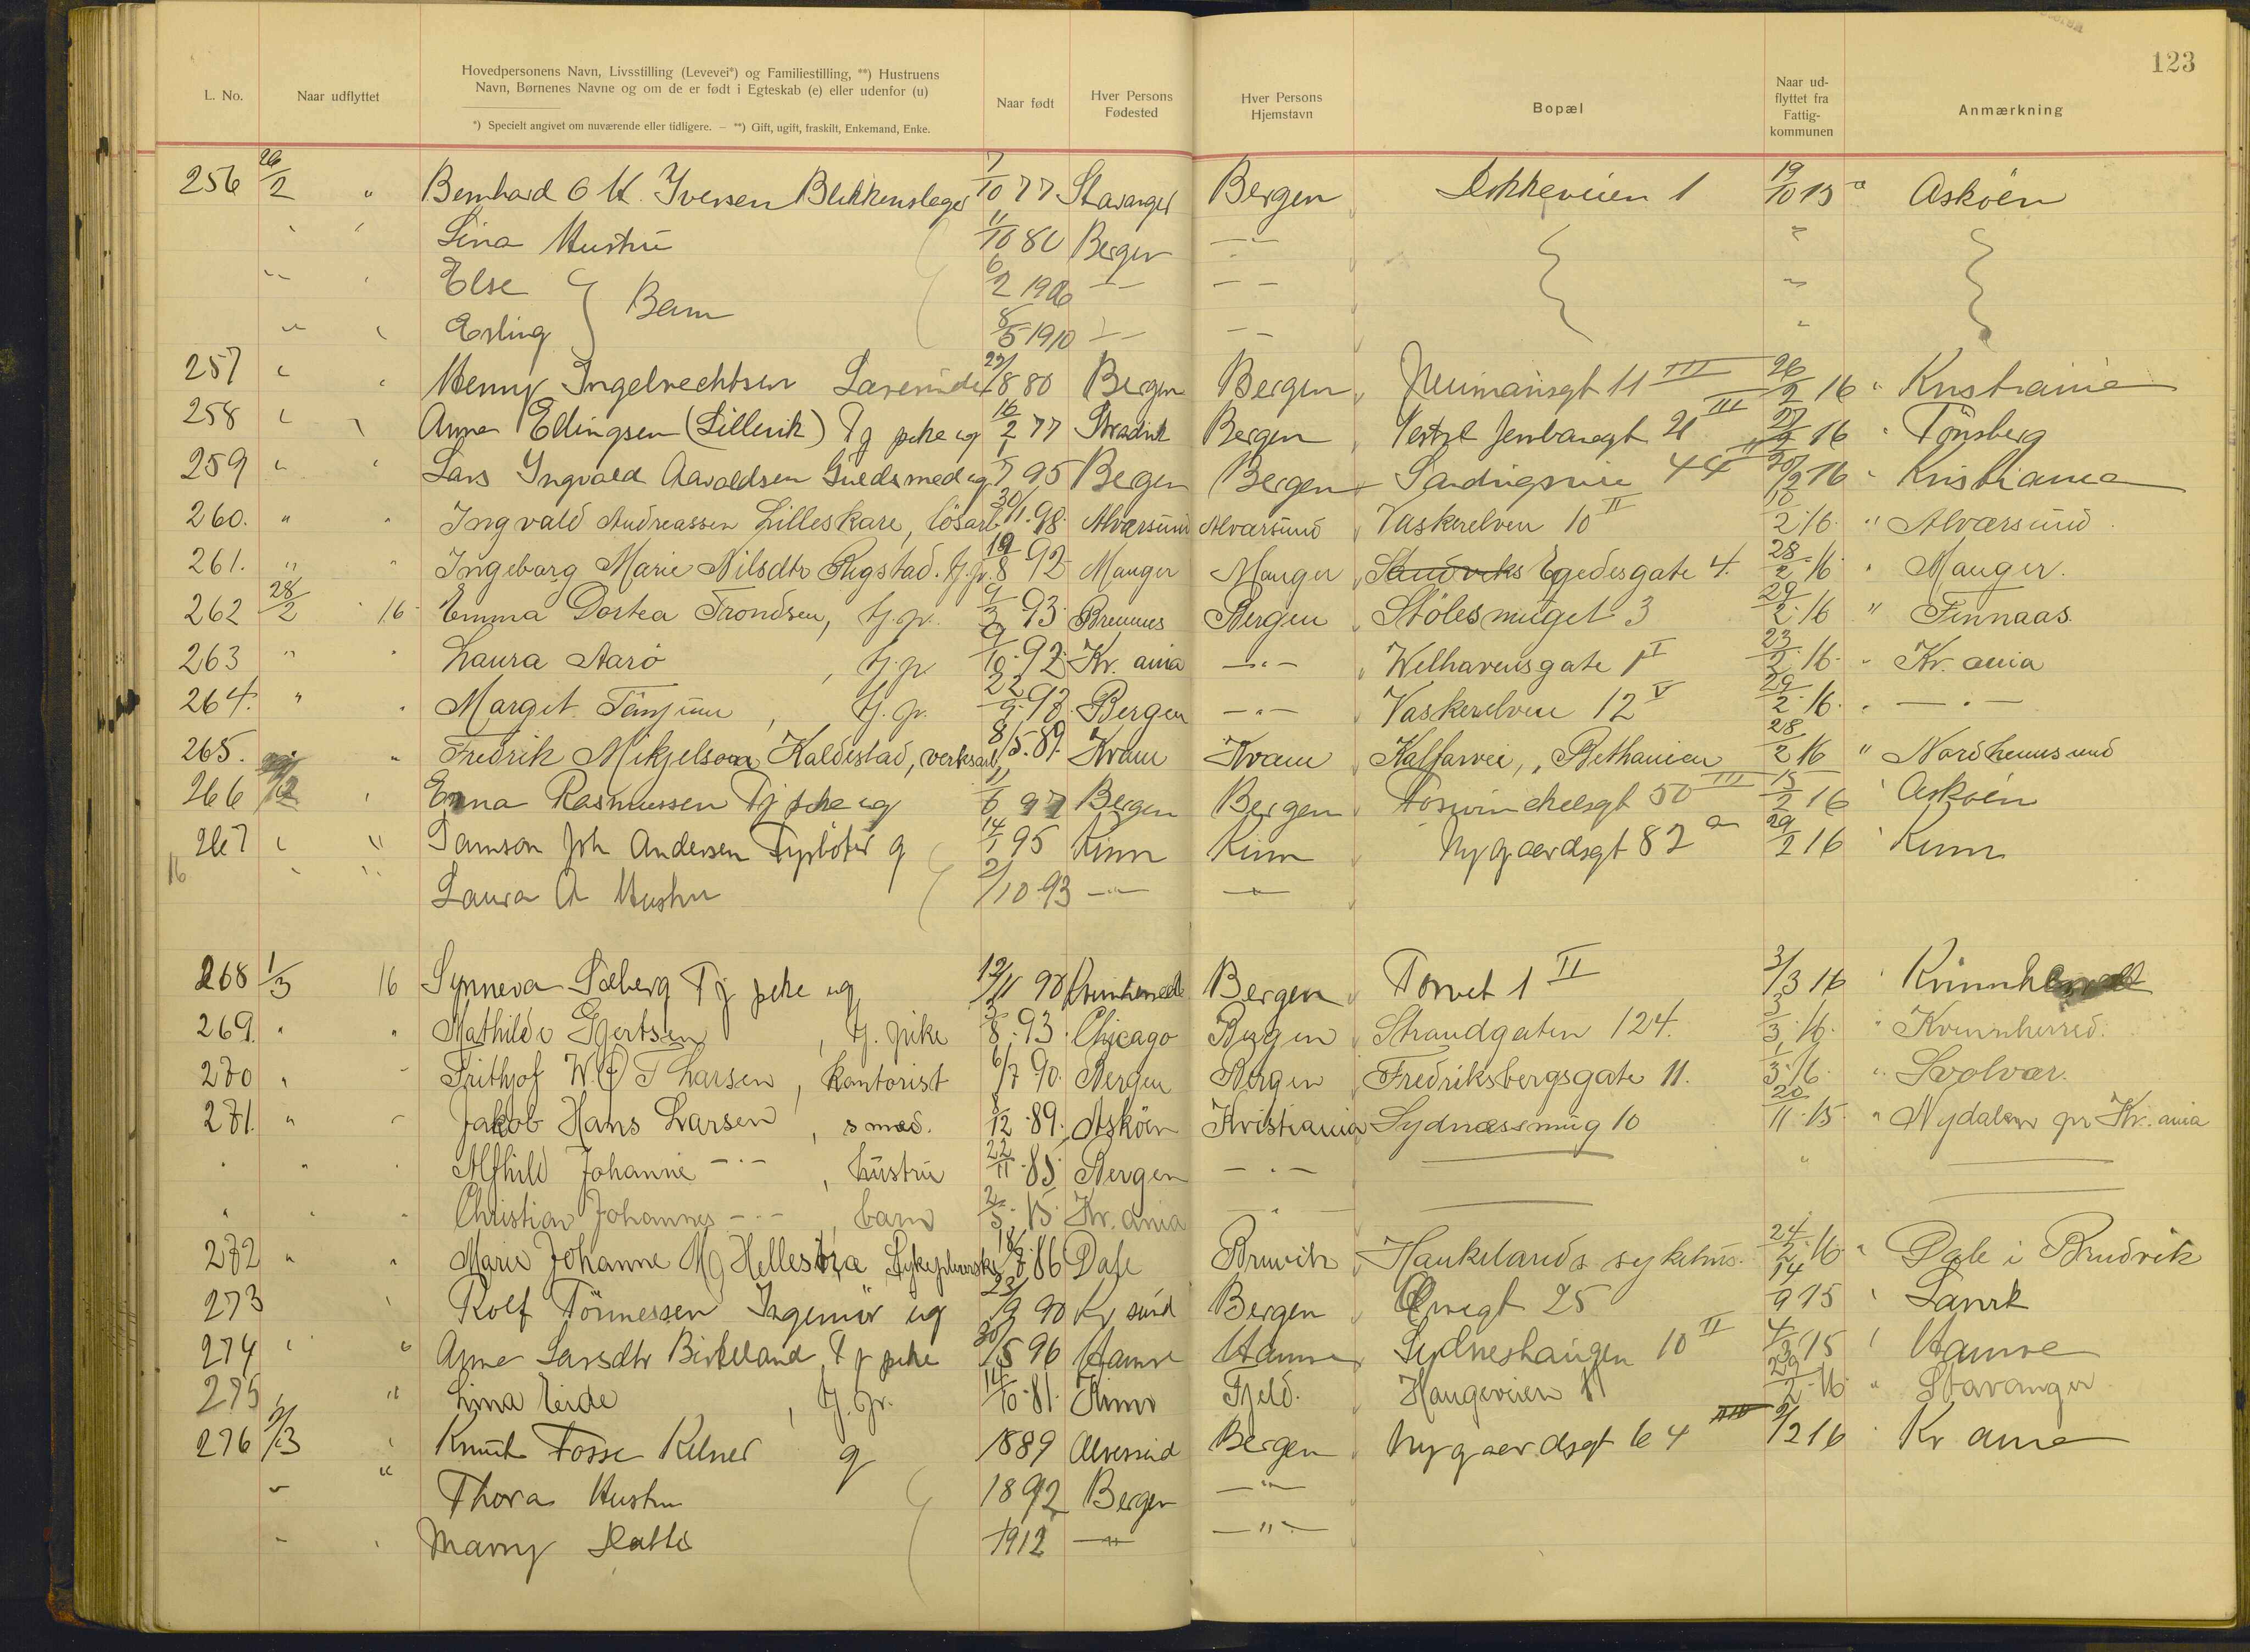 123
L. No. Naar udflyttet Hovedpersonens Navn, Livsstilling (Levevei*) og Familiestilling, **) Hustruens Navn, Børnenes Navne og om de er født i Egteskab (e) eller udenfor (u) Naar født Hver Persons Fødested Hver Persons Hjemstavn Bopæl Naar ud-flyttet fra Fattig-kommunen Anmærkning
*) Specielt angivet om nuværende eller tidligere. — **) Gift, ugift, fraskilt, Enkemand, Enke.
256 26/2 " Bernhard O K. Iversen Blikkenslager 7/10 77 Stavanger Bergen 1 19/10 15 " Askøen
" " Lina Hustru 11/10 80 Bergen —"— "
" " Else } Barn 6/2 1906 —"— — — "
" " Erling 8/5 1910 —"— — — "
257 " " Henny Ingebrechtsen Lærerinde 22/8 80 Bergen Bergen Neumansgt 11 III 26/2 16 " Kristiania
258 " " Anna Ellingsen (Lillevik) Tj pike ug 16/2 77 Bergen Jernbanegt 21 III 16 " Tønsberg
259 " " Lars Ingvald Aavoldsen Guldsmed ug 95 Bergen Bergen 44 II 2 16 " Kristiania
260. " " Ingvald Andreassen Lilleskare, løsarb. 30/11 98. Alversund Alversund Vaskerelven 10 II 10/2 16. " Alversund.
261. " " Ingeborg Marie Nilsdtr Rigstad. tj. p. 19/8 92 Manger Manger Sandviks Egedesgate 4. 28/2 16. " Manger.
262 28/2 16 Emma Dortea Trondsen, tj. p. 9/3 93. Bremnes Bergen Stølesmuget 3 29/2 16 " Finnaas.
263 " " Laura Aarø, tj. p. 9/10 92. Kr. ania —"— Welhavensgate 1 I 23/2 16. " Kr. ania
264. " " Margit, tj. p. 22/9 98. Bergen —"— Vaskerelven 12 V 29/2 16. " —"—
265. " " Fredrik Mikjelson Kaldestad, verksarb. 8/5. 89. Kvam Kvam Kalfarvei, „Bethanien 28/2 16 " Nordheimsund
266 29/2 " Erna Rasmussen Tj pike ug 6 97 Bergen Bergen Fosswinckelsgt 50 III 15/2 16 " Askøen
267 " " Samson Joh Andersen Fyrbøter g 14/1 95 Kinn Kinn Nygaardsgt 82 a 29/2 16 " Kinn
16 " " Laura A Hustru 2/10 93 —"— —"—
268 1/3 16 Synneva Sæberg Tj pike ug 12/11 90 Bergen Torvet 1 II 3/3 16 "
269. " " Mathilde Gjertsen, tj. pike 3/8. 93. Chicago Bergen Strandgaten 124. 3/3. 16. " Kvinnherred.
270 " " Frithjof W. O T Larsen, kontorist 6/7 90. Bergen Bergen Fredriksbergsgate 11. 1/3. 16. " Svolvær.
271. " " Jakob Hans Larsen, smed. 8/12. 89. Askøen Kristiania Sydnæssmug 10 20/11. 15. " Nydalen pr Kr. ania
" " " Alfhild Johanne —"—, hustru 22/11. 85. Bergen —"— "
" " " Christian Johannes —"—, barn 2/5. 15. Kr. ania —"—
272 " " Marie Johanne M Sykepleierske 18/8. 86 Dale Bruvik Haukelands sykehus. 24/2. 16. " Dale i Brudvik
273 " Rolf Tönnessen Ingeniør ug 23/9 90 Kr sund Bergen 25 14/9 15 " Larvik
274 " " Anne Larsdtr Birkeland, Tj pike 30/5 96 Hamre Hamre Sydneshaugen 10 II 4/3 15 " Hamre
275 " " Lina Eide, tj. p. 14/10. 81. Kinn Fjeld. Haugeveien 29/2. 16 " Stavanger
276 2/3 " Knut Fosse Kelner g 1889 Alversund Bergen Nygaardsgt 64 2/2 16 " Kr ania
" " Thora Hustru 1892 Bergen —"—
" " 1912 —"— —"—